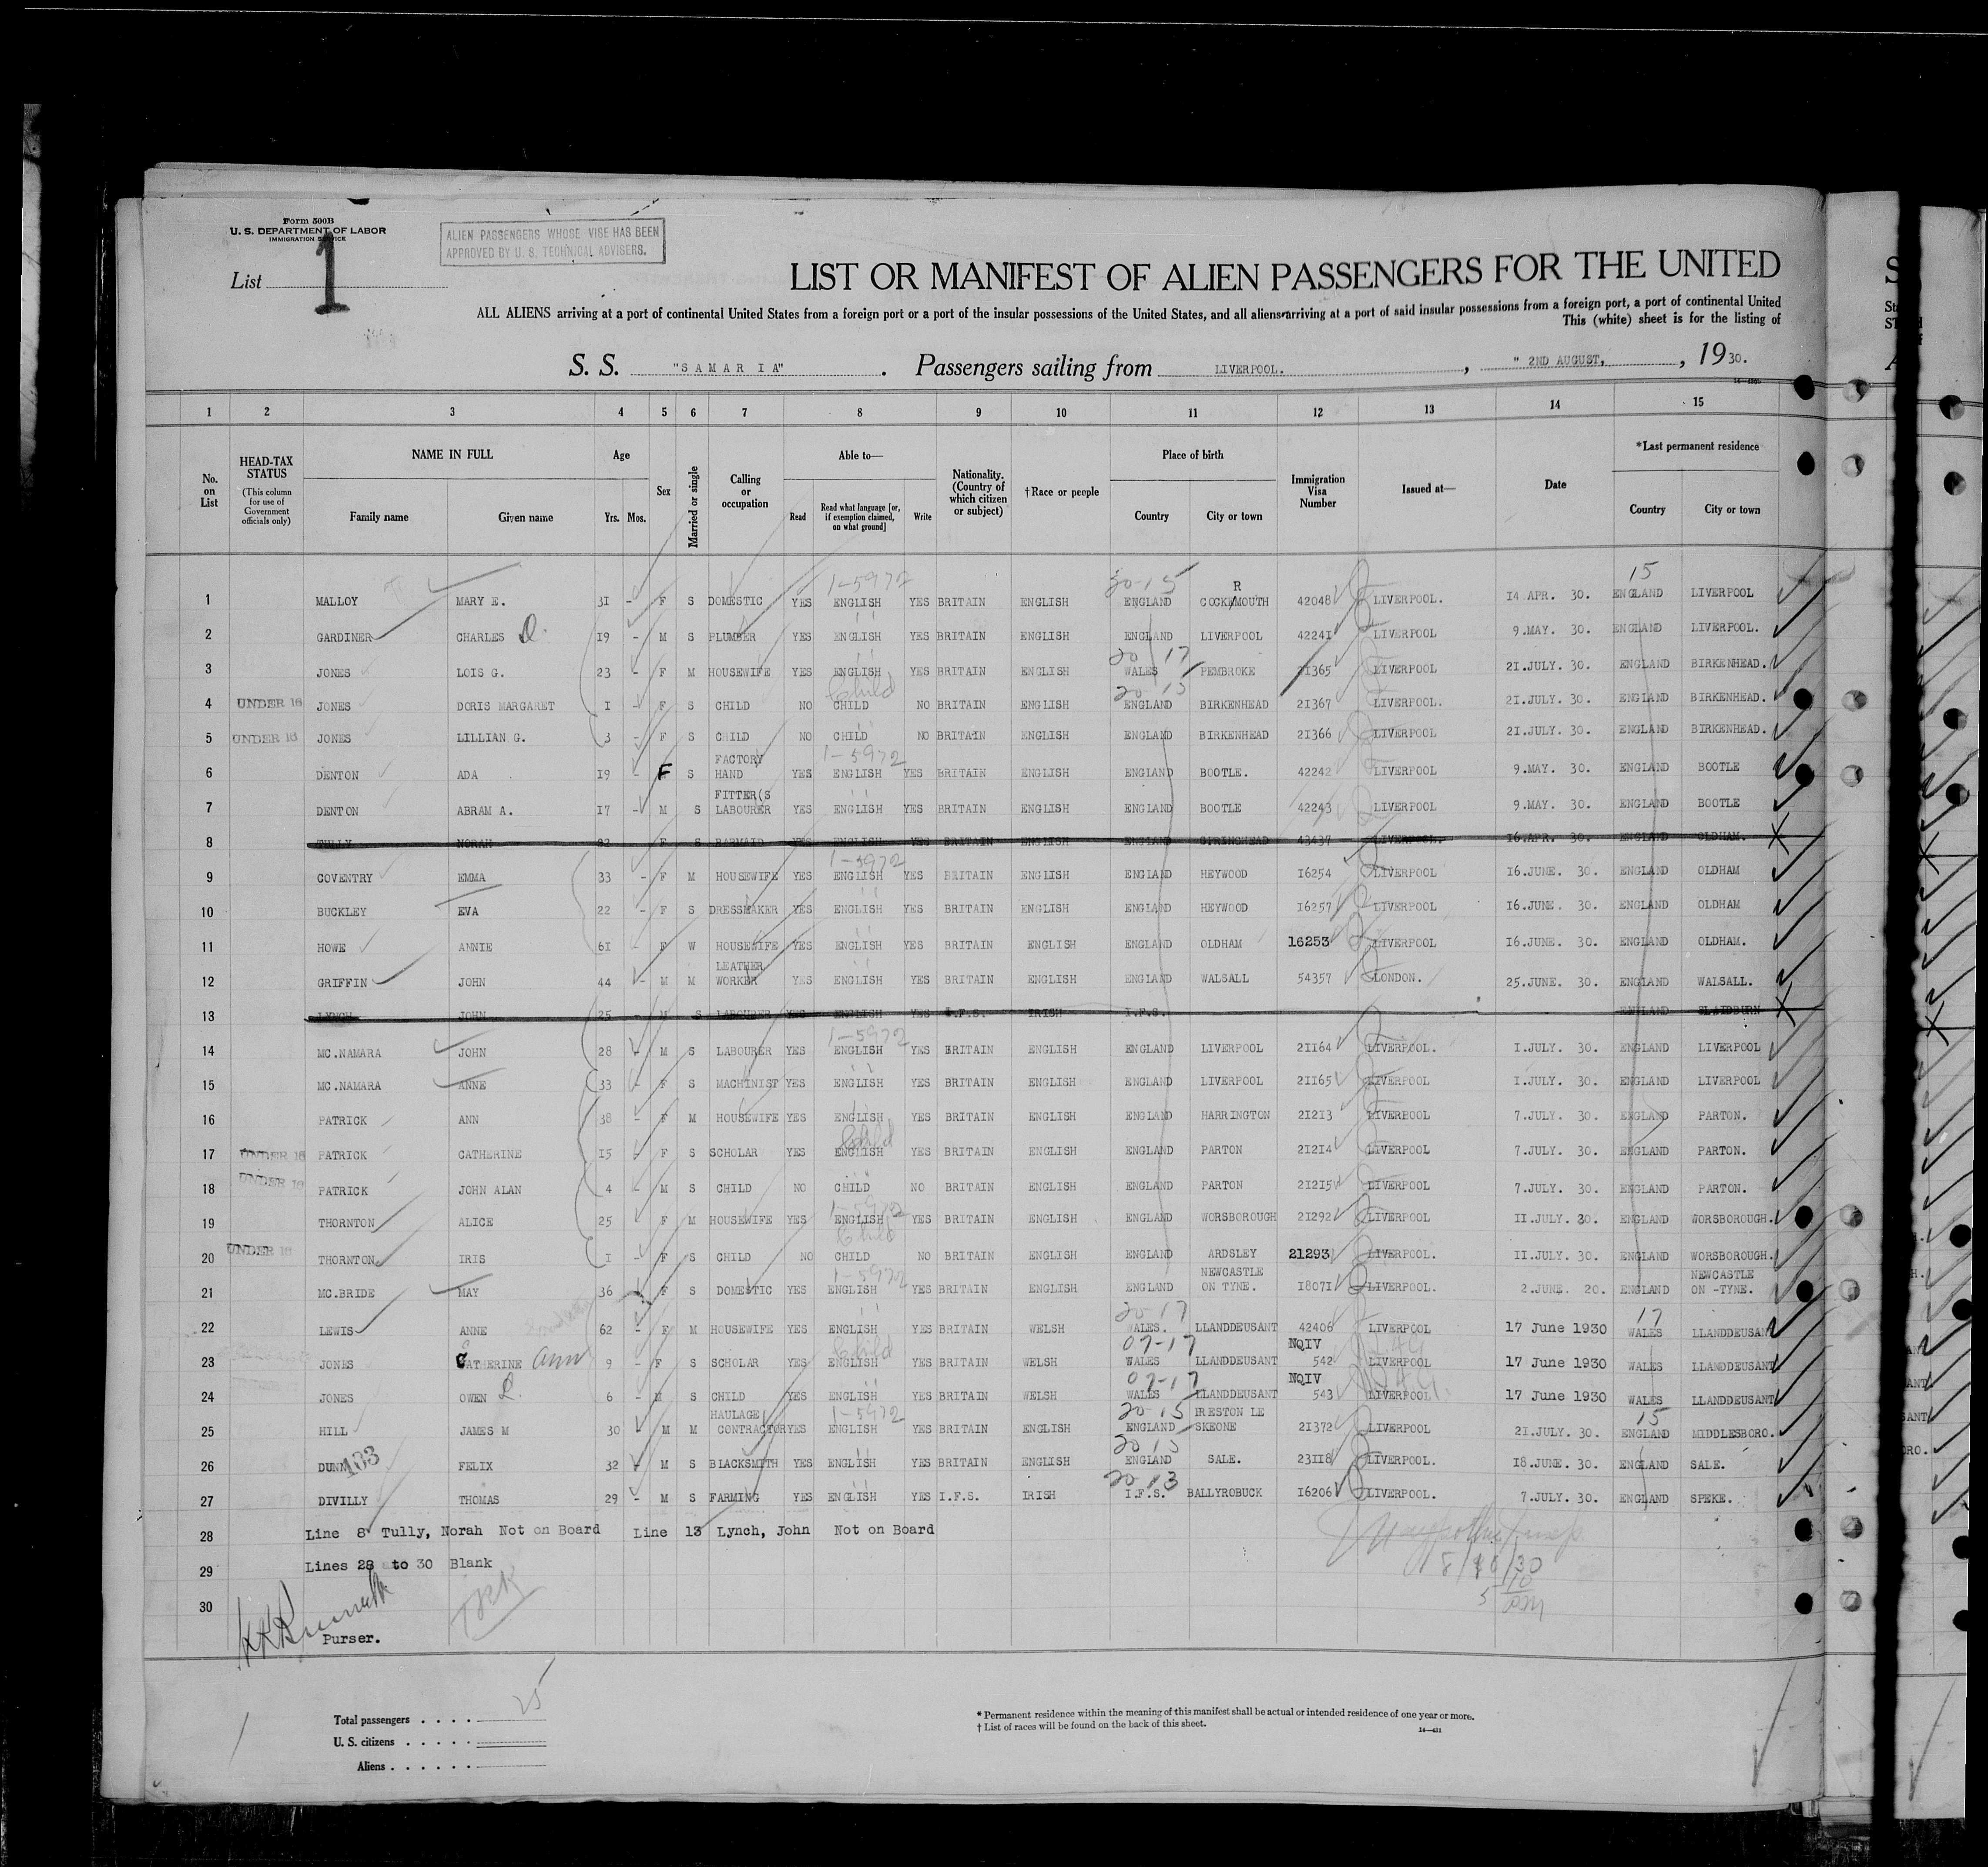 Form 500B
U. S. DEPARTMENT OF LABOR
IMMIGRATION SERVICE
ALIEN PASSENGERS WHOSE VISE HAS BEEN
APPROVED BY U. S. TECHNICAL ADVISERS.
List 1
LIST OR MANIFEST OF ALIEN PASSENGERS FOR THE UNITED
ALL ALIENS arriving at a port of continental United States from a foreign port or a port of the insular possessions of the United States, and all aliens arriving at a port of said insular possessions from a foreign port, a port of continental United
This (white) sheet is for the listing of
S. S. "SAMARIA". Passengers sailing from LIVERPOOL. , " 2ND AUGUST, , 1930.
1 2 3 4 5 6 7 8 9 10 11 12 13 14 15
No. on List
HEAD-TAX STATUS (This column for use of Government officials only)
NAME IN FULL Family name Given name
Age Yrs. Mos.
Sex
Married or single
Calling or occupation
Able to— Read Read what language [or, if exemption claimed, on what ground] Write
Nationality. (Country of which citizen or subject)
†Race or people
Place of birth Country City or town
Immigration Visa Number
Issued at—
Date
*Last permanent residence Country City or town
1-5972 20-15 R 15
1 MALLOY MARY E. 31 - F S DOMESTIC YES ENGLISH YES BRITAIN ENGLISH ENGLAND COCKEMOUTH 42048 LIVERPOOL. 14 APR. 30. ENGLAND LIVERPOOL
2 GARDINER CHARLES D. 19 - M S PLUMBER YES ENGLISH YES BRITAIN ENGLISH ENGLAND LIVERPOOL 42241 LIVERPOOL 9.MAY. 30. ENGLAND LIVERPOOL.
20 17
3 JONES LOIS G. 23 - F M HOUSEWIFE YES ENGLISH YES BRITAIN ENGLISH WALES PEMBROKE 21365 LIVERPOOL 21.JULY. 30. ENGLAND BIRKENHEAD.
Child 20 15
4 UNDER 16 JONES DORIS MARGARET 1 - F S CHILD NO CHILD NO BRITAIN ENGLISH ENGLAND BIRKENHEAD 21367 LIVERPOOL. 21.JULY. 30. ENGLAND BIRKENHEAD.
5 UNDER 16 JONES LILLIAN G. 3 - F S CHILD NO CHILD NO BRITAIN ENGLISH ENGLAND BIRKENHEAD 21366 LIVERPOOL 21.JULY. 30. ENGLAND BIRKENHEAD.
1-5972
6 DENTON ADA 19 - F S FACTORY HAND YES ENGLISH YES BRITAIN ENGLISH ENGLAND BOOTLE. 42242 LIVERPOOL 9.MAY. 30. ENGLAND BOOTLE
7 DENTON ABRAM A. 17 - M S FITTER(S LABOURER YES ENGLISH YES BRITAIN ENGLISH ENGLAND BOOTLE 42243 LIVERPOOL 9.MAY. 30. ENGLAND BOOTLE
8 TULLY NORAH F S BARMAID YES ENGLISH YES BRITAIN ENGLISH ENGLAND 43437 LIVERPOOL. 16.APR. 30. ENGLAND OLDHAM.
1-5972
9 COVENTRY EMMA 33 - F M HOUSEWIFE YES ENGLISH YES BRITAIN ENGLISH ENGLAND HEYWOOD 16254 LIVERPOOL 16.JUNE. 30. ENGLAND OLDHAM
10 BUCKLEY EVA 22 - F S DRESSMAKER YES ENGLISH YES BRITAIN ENGLISH ENGLAND HEYWOOD 16257 LIVERPOOL 16.JUNE. 30. ENGLAND OLDHAM
11 HOWE ANNIE 61 - F W HOUSEWIFE YES ENGLISH YES BRITAIN ENGLISH ENGLAND OLDHAM 16253 LIVERPOOL 16.JUNE. 30. ENGLAND OLDHAM.
12 GRIFFIN JOHN 44 - M M LEATHER WORKER YES ENGLISH YES BRITAIN ENGLISH ENGLAND WALSALL 54357 LONDON. 25.JUNE. 30. ENGLAND WALSALL.
13 LYNCH JOHN 25 - M S LABOURER YES ENGLISH YES I.F.S. IRISH I.F.S. ENGLAND SLAIDBURN
1-5972
14 MC.NAMARA JOHN 28 - M S LABOURER YES ENGLISH YES BRITAIN ENGLISH ENGLAND LIVERPOOL 21164 LIVERPOOL. 1.JULY. 30. ENGLAND LIVERPOOL
15 MC.NAMARA ANNE 33 - F S MACHINIST YES ENGLISH YES BRITAIN ENGLISH ENGLAND LIVERPOOL 21165 LIVERPOOL 1.JULY. 30. ENGLAND LIVERPOOL
16 PATRICK ANN 38 - F M HOUSEWIFE YES ENGLISH YES BRITAIN ENGLISH ENGLAND HARRINGTON 21213 LIVERPOOL 7.JULY. 30. ENGLAND PARTON.
Child
17 UNDER 16 PATRICK CATHERINE 15 - F S SCHOLAR YES ENGLISH YES BRITAIN ENGLISH ENGLAND PARTON 21214 LIVERPOOL 7.JULY. 30. ENGLAND PARTON.
18 UNDER 16 PATRICK JOHN ALAN 4 - M S CHILD NO CHILD NO BRITAIN ENGLISH ENGLAND PARTON 21215 LIVERPOOL 7.JULY. 30. ENGLAND PARTON.
1-5972
19 THORNTON ALICE 25 F M HOUSEWIFE YES ENGLISH YES BRITAIN ENGLISH ENGLAND WORSBOROUGH 21292 LIVERPOOL 11.JULY. 30. ENGLAND WORSBOROUGH.
Child
20 UNDER 16 THORNTON IRIS 1 - F S CHILD NO CHILD NO BRITAIN ENGLISH ENGLAND ARDSLEY 21293 LIVERPOOL. 11.JULY. 30. ENGLAND WORSBOROUGH.
1-5972
21 MC.BRIDE MAY 36 - F S DOMESTIC YES ENGLISH YES BRITAIN ENGLISH ENGLAND NEWCASTLE ON TYNE. 18071 LIVERPOOL. 2.JUNE. 20. ENGLAND NEWCASTLE ON -TYNE.
20-17 17
22 LEWIS ANNE 62 - F M HOUSEWIFE YES ENGLISH YES BRITAIN WELSH WALES. LLANDDEUSANT 42406 LIVERPOOL 17 June 1930 WALES LLANDDEUSANT
Child 07-17
23 JONES CATHERINE Ann 9 - F S SCHOLAR YES ENGLISH YES BRITAIN WELSH WALES LLANDDEUSANT NQIV 542 LIVERPOOL 17 June 1930 WALES LLANDDEUSANT
07-17
24 JONES OWEN 6 - M S CHILD YES ENGLISH YES BRITAIN WELSH WALES LLANDDEUSANT NQIV 543 LIVERPOOL 17 June 1930 WALES LLANDDEUSANT
1-5972 20-15 15
25 HILL JAMES M 30 M M HAULAGE CONTRACTOR YES ENGLISH YES BRITAIN ENGLISH ENGLAND IRESTON LE SKEONE 21372 LIVERPOOL 21.JULY. 30. ENGLAND MIDDLESBORO.
20 15
26 DUNN 133 FELIX 32 - M S BLACKSMITH YES ENGLISH YES BRITAIN ENGLISH ENGLAND SALE. 23118 LIVERPOOL. 18.JUNE. 30. ENGLAND SALE.
20 13
27 DIVILLY THOMAS 29 - M S FARMING YES ENGLISH YES I.F.S. IRISH I.F.S. BALLYROBUCK 16206 LIVERPOOL. 7.JULY. 30. ENGLAND SPEKE.
28 Line 8 Tully, Norah Not on Board Line 13 Lynch, John Not on Board
29 Lines 28 to 30 Blank
30
Purser.
Total passengers . . . . 25
U. S. citizens . . . . .
Aliens . . . . . .
* Permanent residence within the meaning of this manifest shall be actual or intended residence of one year or more.
† List of races will be found on the back of this sheet.